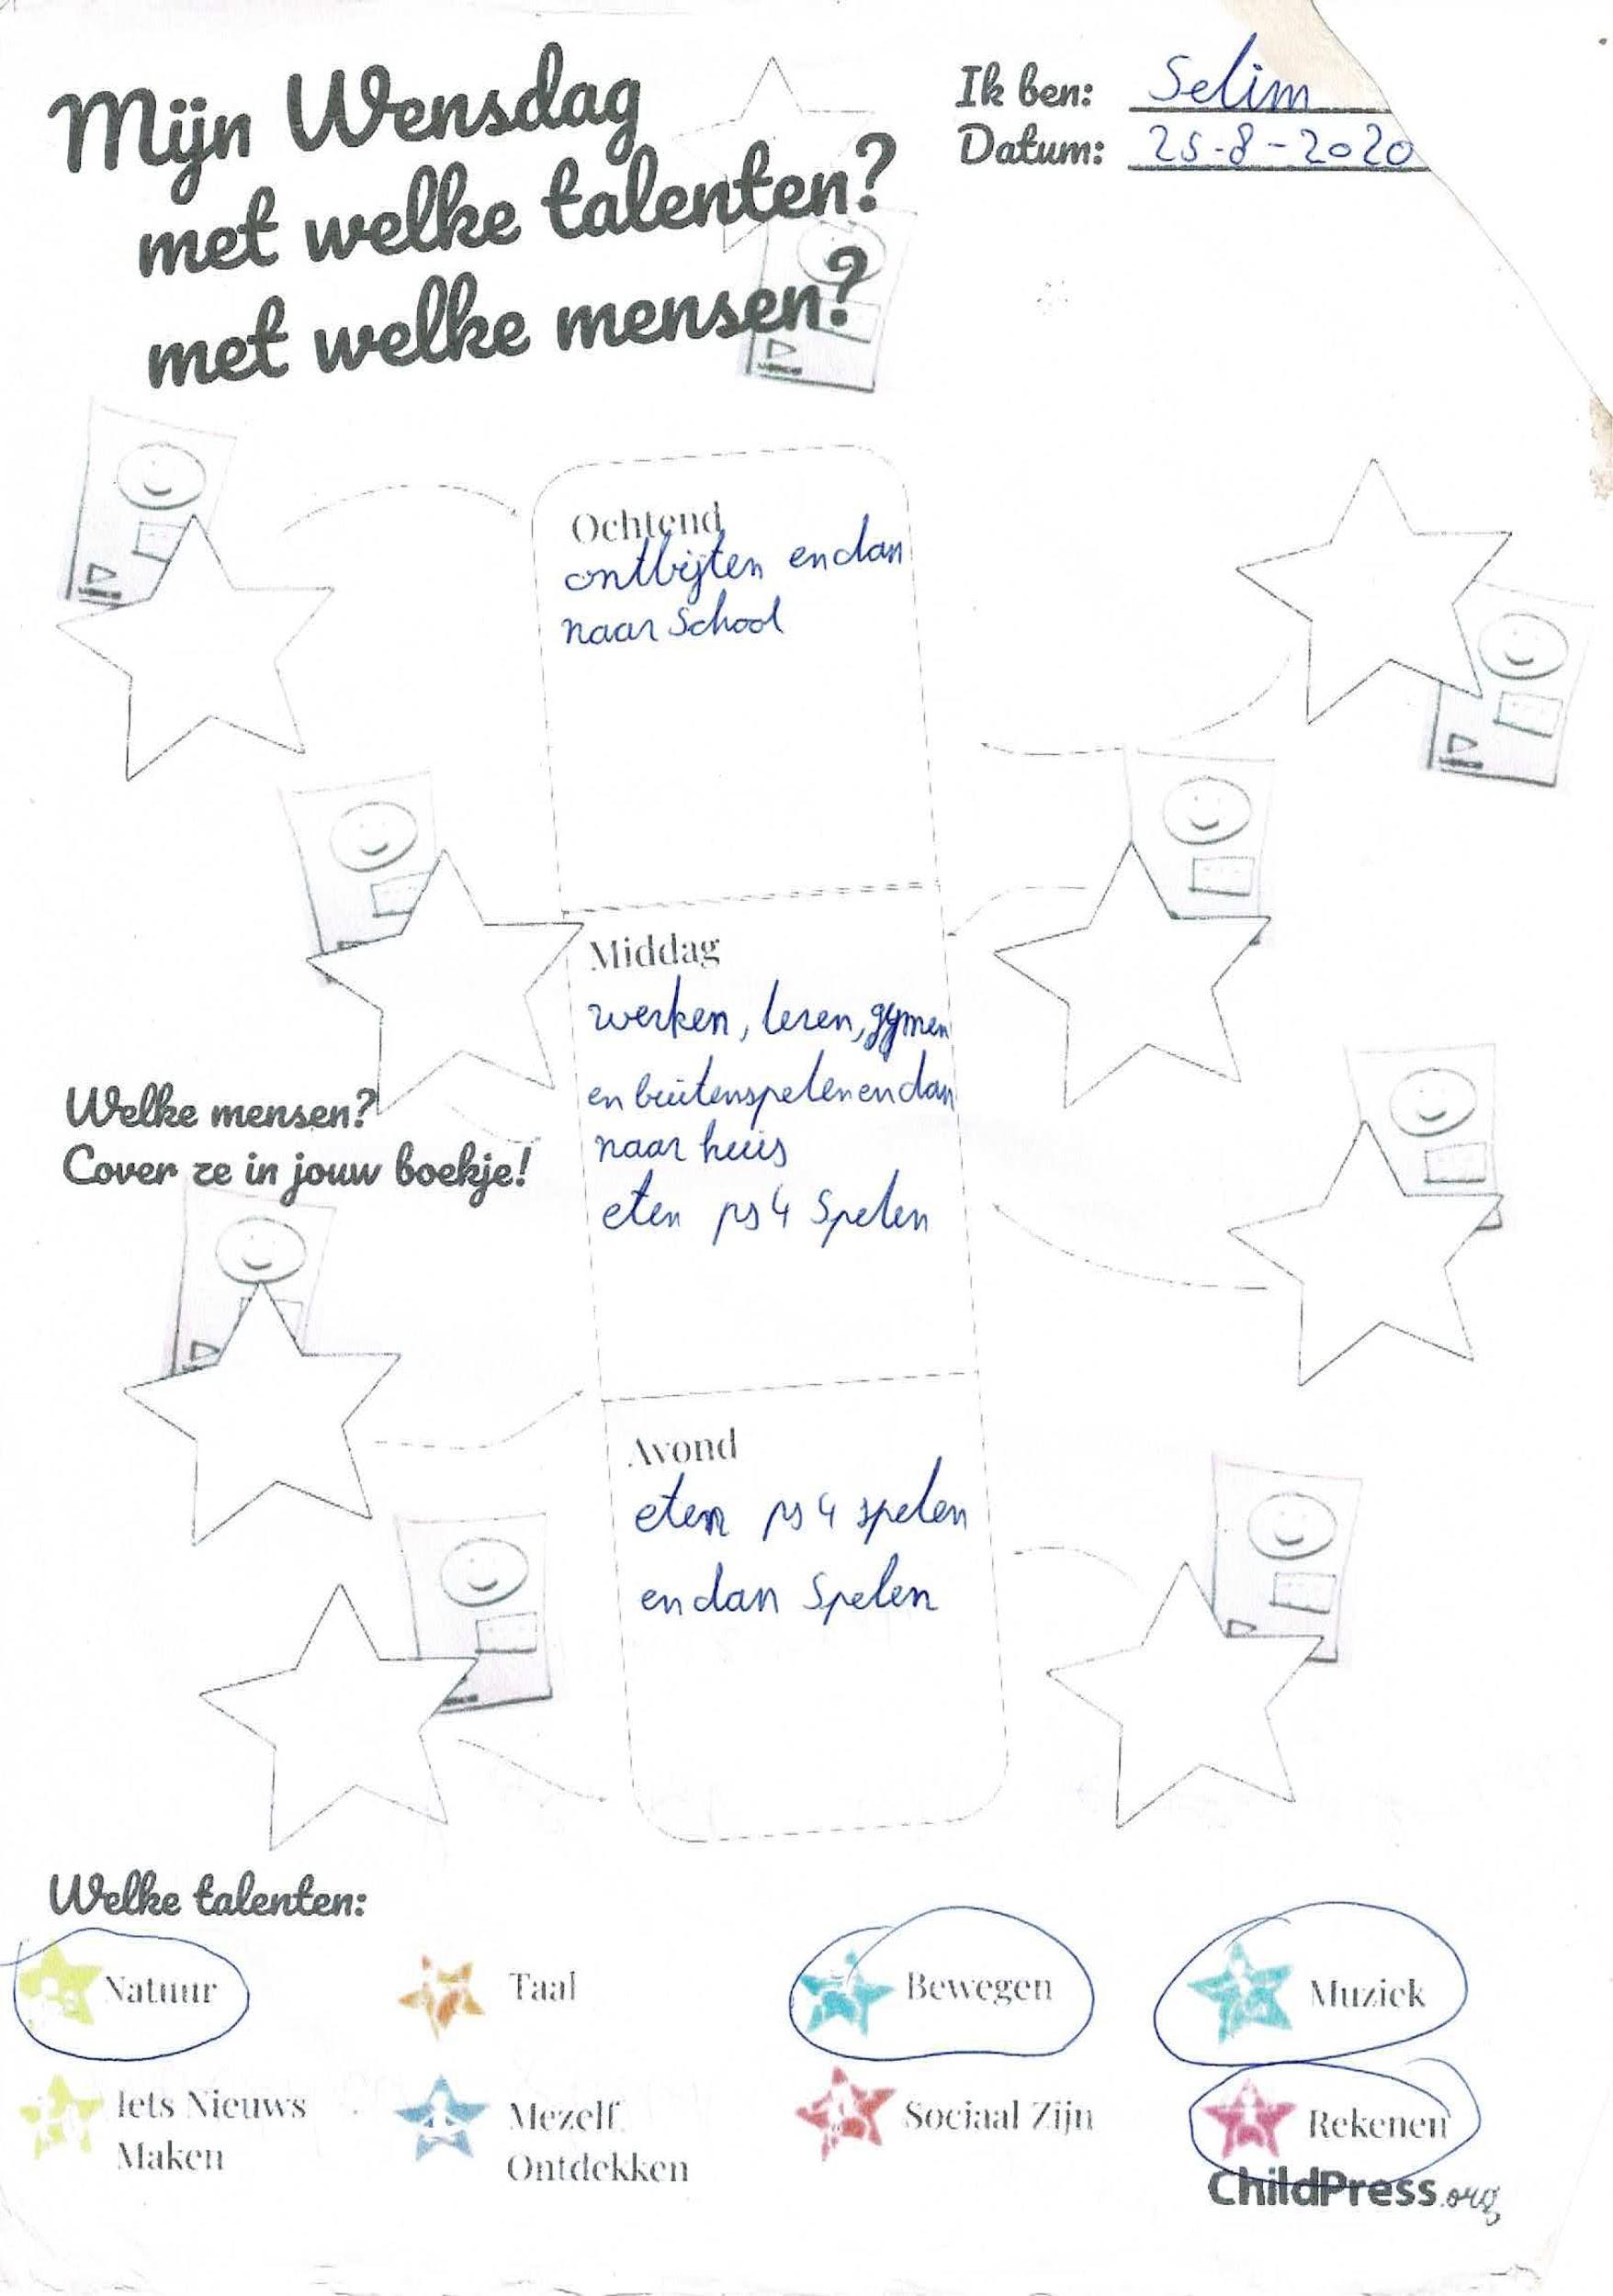 Mijn Wensdag
met welke talenten?
met welke mensen?
Ik ben: Selim
Datum: 25-8-2020
Ochtend
ontbijten en dan
naar School
Middag
werken, leren, gymen
en buitenspelen en dan
naar huis
eten ps4 Spelen
Welke mensen?
Cover ze in jouw boekje!
Avond
eten ps4 spelen
en dan Spelen
Welke talenten:
Natuur
Taal
Bewegen
Muziek
Iets Nieuws
Maken
Mezelf
Ontdekken
Sociaal Zijn
Rekenen
ChildPress.org